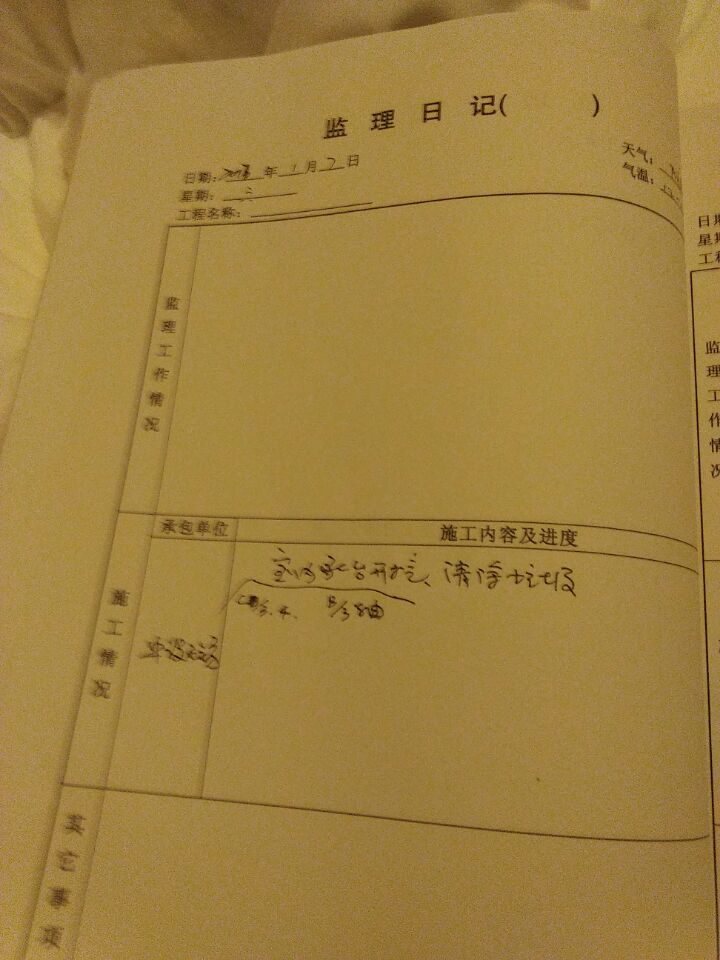 监理日记(        )
日期: 年 1 月 2 日
天气:
星期: 六
气温:
工程名称:
监理工作情况
承包单位
施工内容及进度
施工情况
承台开挖、清除垃圾
3.4. B/3 8轴
其它事项
日期
星期
工程
监理工作情况